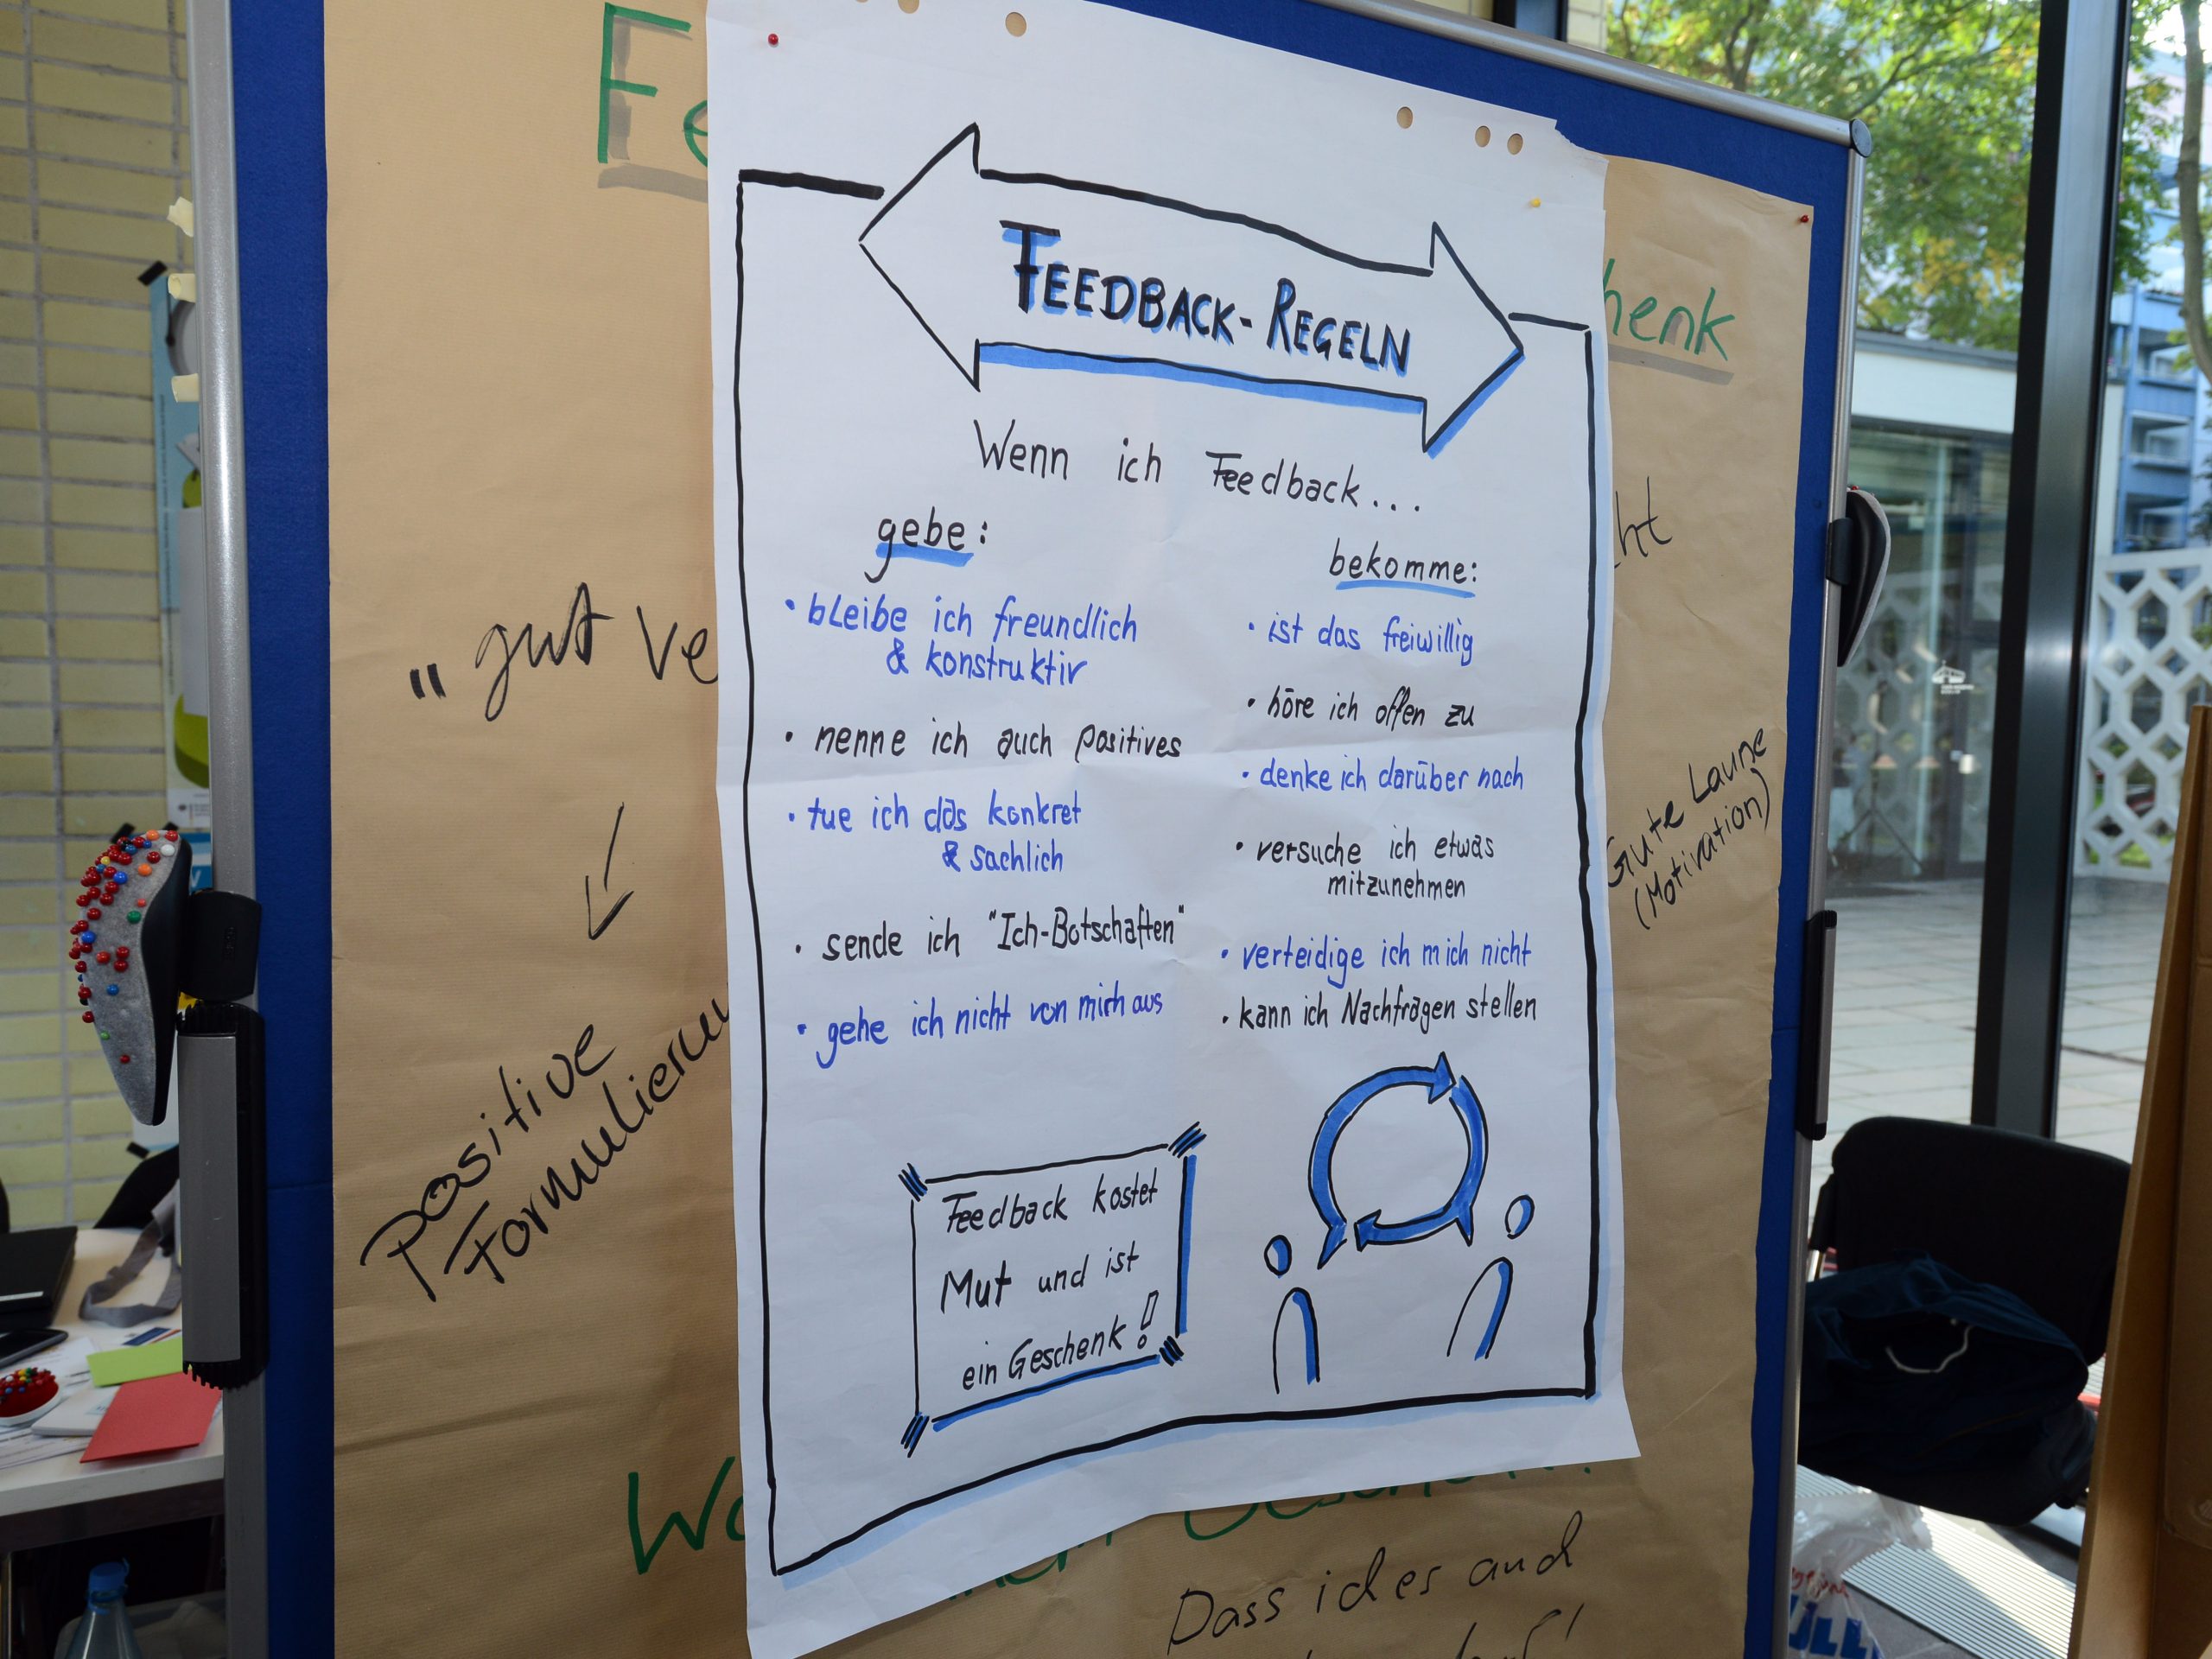 FEEDBACK-REGELN
Wenn ich Feedback...
gebe:
• bleibe ich freundlich
& konstruktiv
• nenne ich auch positives
• tue ich das konkret
& sachlich
• sende ich "Ich-Botschaften"
• gehe ich nicht von mir aus
bekomme:
• ist das freiwillig
• höre ich offen zu
• denke ich darüber nach
• versuche ich etwas
mitzunehmen
• verteidige ich mich nicht
• kann ich Nachfragen stellen
Feedback kostet
Mut und ist
ein Geschenk!
Fe
henk
„gut ve
ht
Gute Laune
(Motivation)
positive
Formulieru
Dass ich es auch